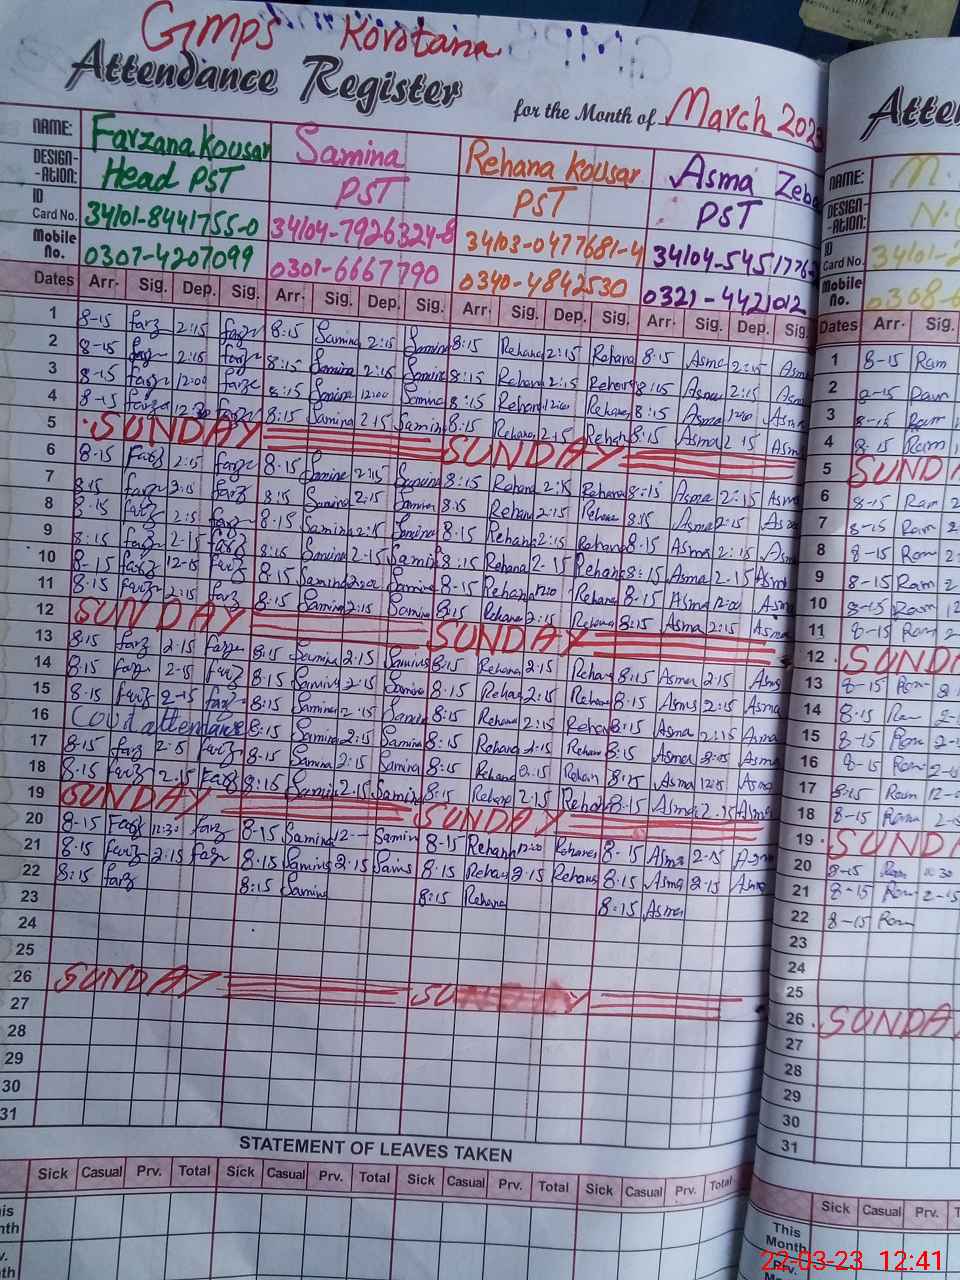 GMPS Korotana
Attendance Register
for the Month of March 2023
NAME: Farzana Kousar Samina Rehana Kousar Asma Zeb
DESIGN-ATION: Head PST PST PST PST
ID Card No. 34101-8441755-0 34104-7926324-8 34103-0477681-4 34104-5451776-
Mobile No. 0307-4207099 0301-6667790 0340-4842530 0321-4421012
Dates Arr. Sig. Dep. Sig. Arr. Sig. Dep. Sig. Arr. Sig. Dep. Sig. Arr. Sig. Dep. Sig.
1 8-15 farz 2:15 farz 8:15 Samina 2:15 Samina 8:15 Rehana 2:15 Rehana 8:15 Asma 2:15 Asma
2 8-15 farz 2:15 farz 8:15 Samina 2:15 Samina 8:15 Rehana 2:15 Rehana 8:15 Asma 2:15 Asma
3 8-15 farz 12:00 farz 8:15 Samina 12:00 Samina 8:15 Rehana 12:00 Rehana 8:15 Asma 12:00 Asma
4 8-15 farz 12:30 farz 8:15 Samina 2:15 Samina 8:15 Rehana 2:15 Rehana 8:15 Asma 2:15 Asma
5 SUNDAY SUNDAY
6 8-15 farz 2:15 farz 8:15 Samina 2:15 Samina 8:15 Rehana 2:15 Rehana 8:15 Asma 2:15 Asma
7 8:15 farz 2:15 farz 8:15 Samina 2:15 Samina 8:15 Rehana 2:15 Rehana 8:15 Asma 2:15 Asma
8 8:15 farz 2:15 farz 8:15 Samina 2:15 Samina 8:15 Rehana 2:15 Rehana 8:15 Asma 2:15 Asma
9 8:15 farz 2-15 farz 8:15 Samina 2-15 Samina 8:15 Rehana 2-15 Rehana 8:15 Asma 2-15 Asma
10 8-15 farz 12-15 farz 8:15 Samina 12:00 Samina 8-15 Rehana 12:00 Rehana 8-15 Asma 12:00 Asma
11 8:15 farz 2:15 farz 8:15 Samina 2:15 Samina 8:15 Rehana 2:15 Rehana 8:15 Asma 2:15 Asma
12 SUNDAY SUNDAY
13 8:15 farz 2:15 farz 8:15 Samina 2:15 Samina 8:15 Rehana 2:15 Rehana 8:15 Asma 2:15 Asma
14 8:15 farz 2:15 farz 8:15 Samina 2:15 Samina 8:15 Rehana 2:15 Rehana 8:15 Asma 2:15 Asma
15 8-15 farz 2-15 farz 8:15 Samina 2-15 Samina 8:15 Rehana 2:15 Rehana 8:15 Asma 2:15 Asma
16 attendance 8:15 Samina 2:15 Samina 8:15 Rehana 2:15 Rehana 8:15 Asma Asma
17 8-15 farz 2:15 farz 8-15 Samina 2:15 Samina 8:15 Rehana 2:15 Rehana 8:15 Asma 12:15 Asma
18 8-15 farz 2.15 farz 8:15 Samina 2.15 Samina 8:15 Rehana 2.15 Rehana 8-15 Asma 2.15 Asma
19 SUNDAY SUNDAY
20 8-15 farz 12:30 farz 8-15 Samina 12- Samina 8-15 Rehana 12:00 Rehana 8-15 Asma 2-15 Asma
21 8:15 farz 2:15 farz 8:15 Samina 2:15 Samina 8:15 Rehana 2:15 Rehana 8:15 Asma 2:15 Asma
22 8:15 farz 8:15 Samina 8:15 Rehana 8:15 Asma
23
24
25
26 SUNDAY SUNDAY
27
28
29
30
31
STATEMENT OF LEAVES TAKEN
Sick Casual Prv. Total Sick Casual Prv. Total Sick Casual Prv. Total Sick Casual Prv. Total
Atte
NAME: M.
DESIGN-ATION: N.
ID Card No. 34101-2
Mobile No. 0308-6
Dates Arr. Sig.
1 8-15 Ram
2 8-15 Ram
3 8-15 Ram
4 8-15 Ram
5 SUND
6 8-15 Ram 2
7 8-15 Ram 2
8 8-15 Ram 2
9 8-15 Ram 2
10 8-15 Ram 12
11 8-15 Ram 2
12 SUND
13 8-15 Ram 2
14 8-15 Ram 2-
15 8-15 Ram 2-
16 8-15 Ram 2-
17 8:15 Ram 12-
18 8-15 Ram 2-
19 SUND
20 8-15 Ram 12 30
21 8-15 Ram 2-15
22 8-15 Ram
23
24
25
26 SUNDA
27
28
29
30
31
Sick Casual Prv.
This Month
Prv.
22-03-23 12:41